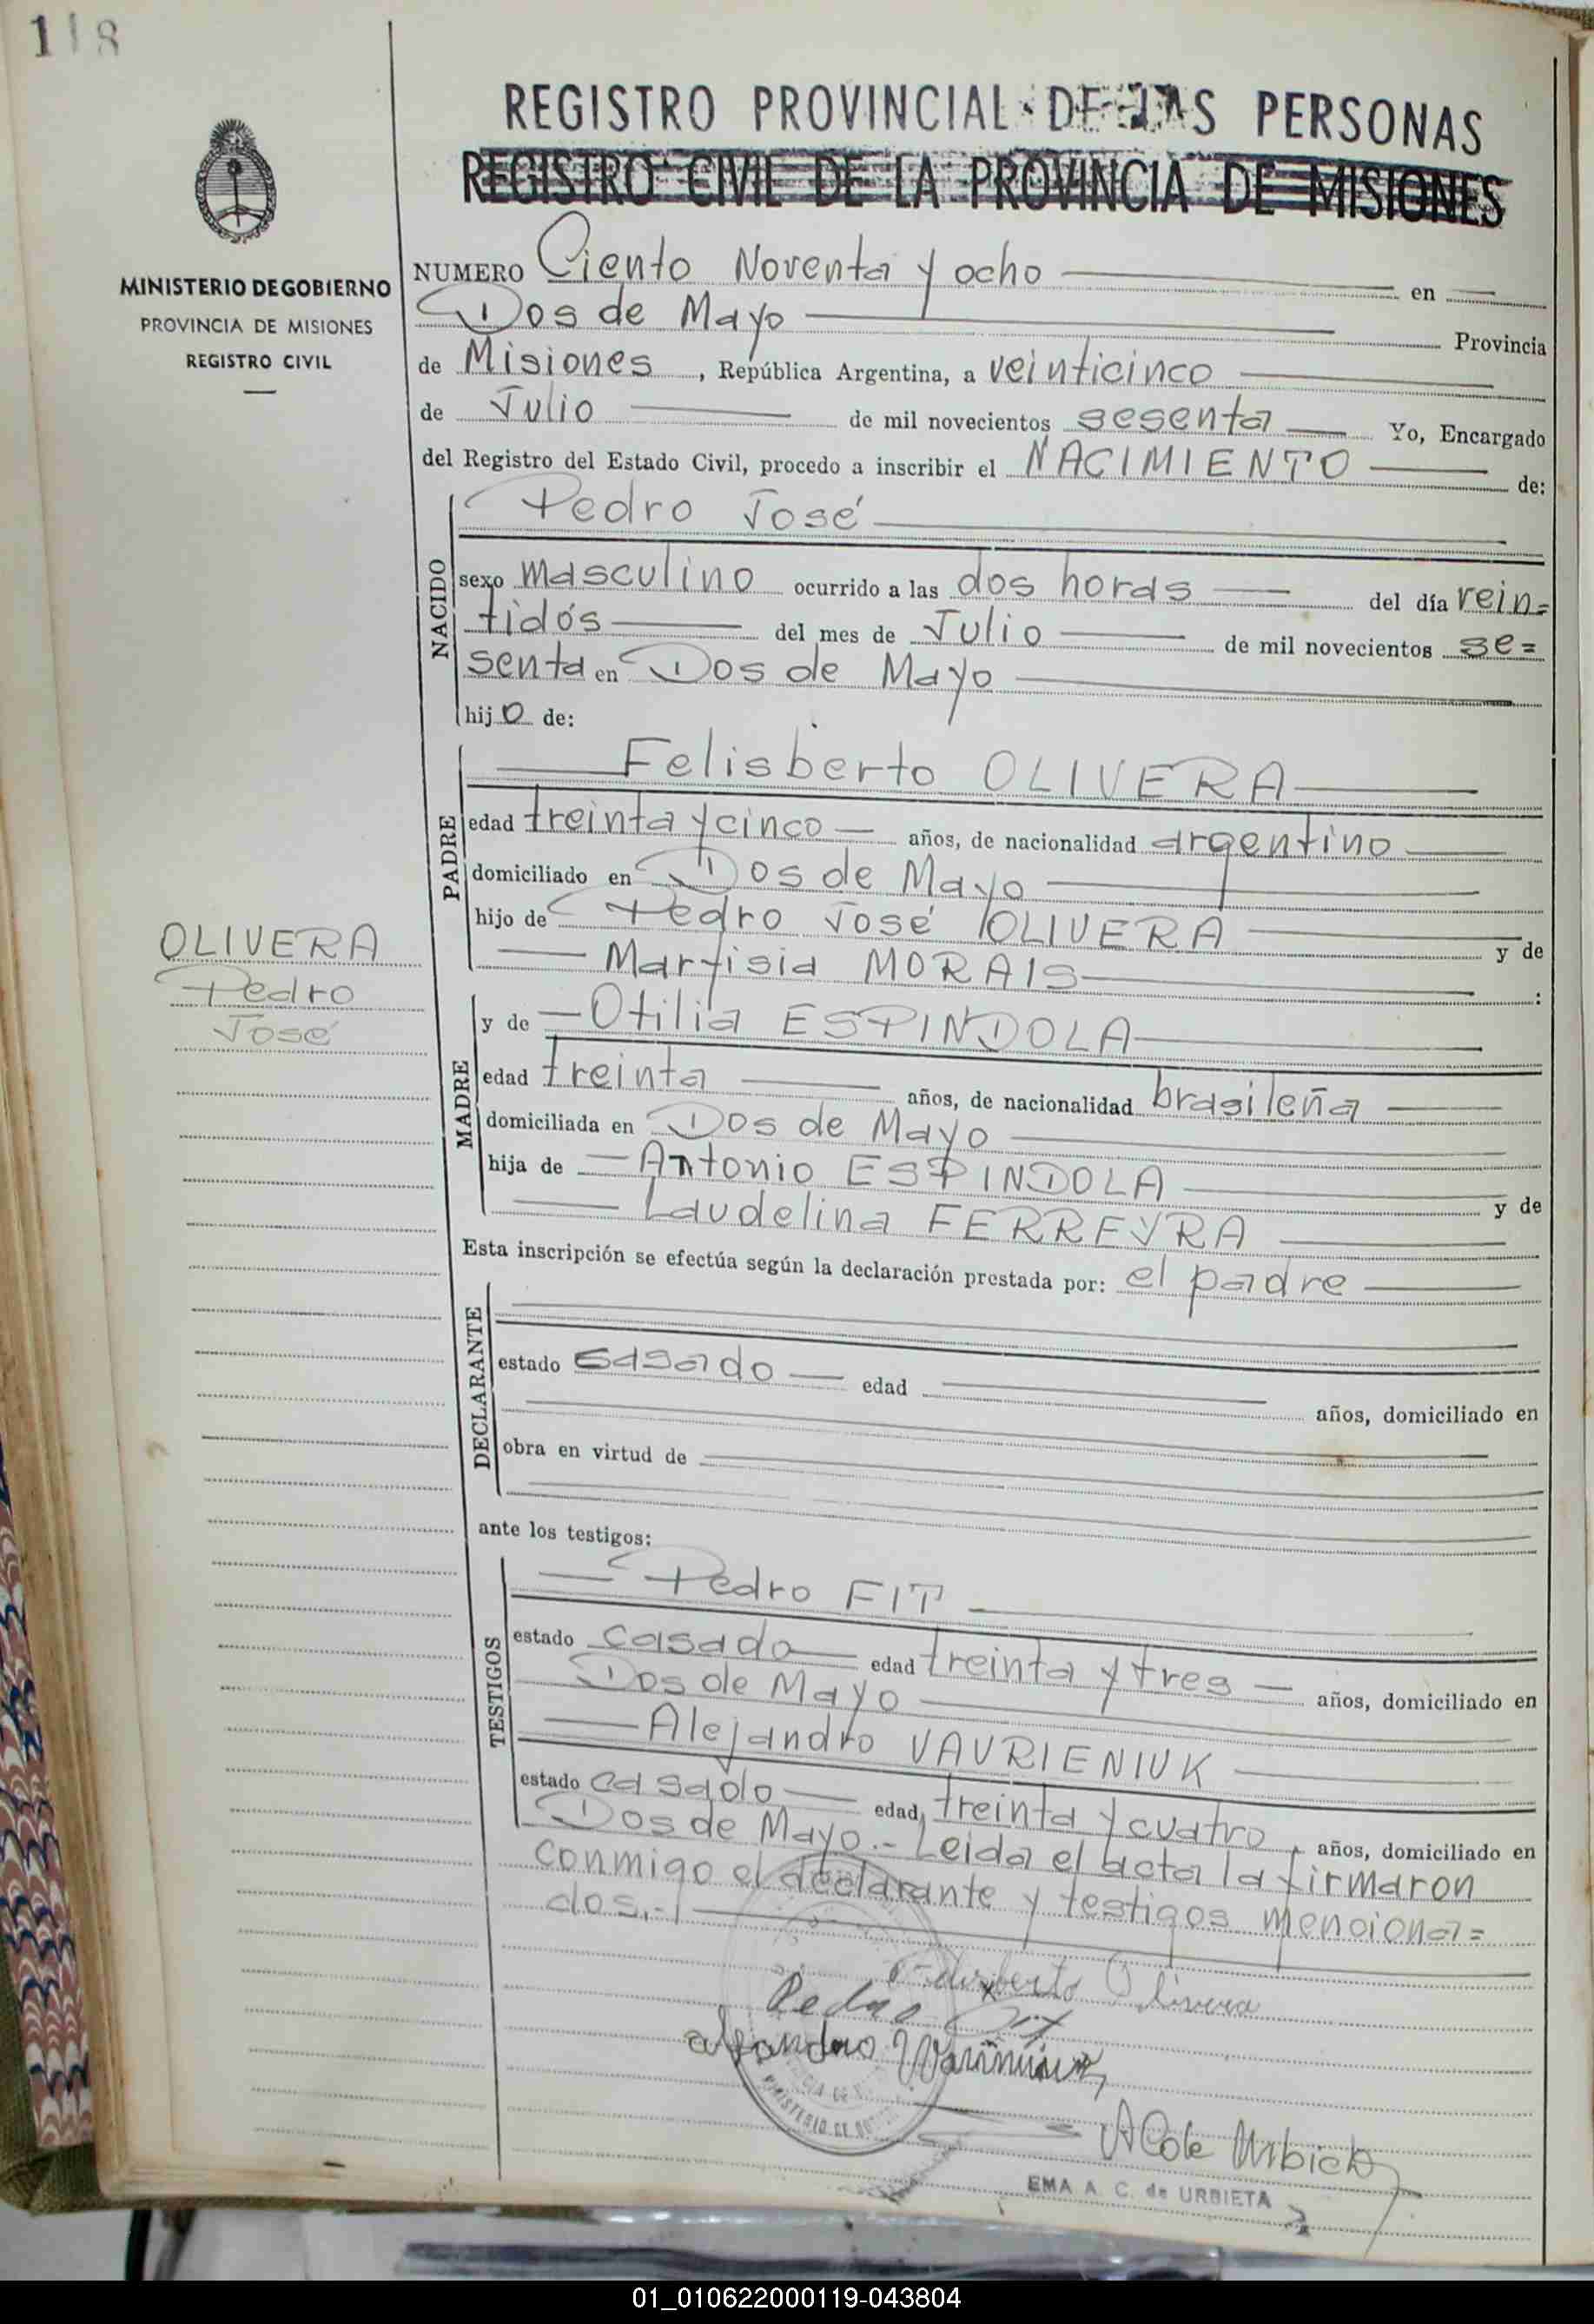 118
REGISTRO PROVINCIAL DE LAS PERSONAS
REGISTRO CIVIL DE LA PROVINCIA DE MISIONES
MINISTERIO DE GOBIERNO
PROVINCIA DE MISIONES
REGISTRO CIVIL
NUMERO Ciento Noventa y ocho en
Dos de Mayo Provincia
de Misiones, República Argentina, a veinticinco
de Julio de mil novecientos sesenta Yo, Encargado
del Registro del Estado Civil, procedo a inscribir el NACIMIENTO de:
NACIDO
Pedro José
sexo masculino ocurrido a las dos horas del día vein=
tidós del mes de Julio de mil novecientos se=
senta en Dos de Mayo
hijo de:
PADRE
Felisberto OLIVERA
edad treinta y cinco años, de nacionalidad argentino
domiciliado en Dos de Mayo
hijo de Pedro José OLIVERA y de
Marfisia MORAIS
OLIVERA
Pedro
José
MADRE
y de Otilia ESPINDOLA
edad treinta años, de nacionalidad brasileña
domiciliada en Dos de Mayo
hija de Antonio ESPINDOLA y de
Laudelina FERREYRA
Esta inscripción se efectúa según la declaración prestada por: el padre
DECLARANTE
estado casado edad años, domiciliado en
obra en virtud de
ante los testigos:
TESTIGOS
Pedro FIT
estado casado edad treinta y tres años, domiciliado en
Dos de Mayo
Alejandro VAVRIENIUK
estado casado edad treinta y cuatro, años, domiciliado en
Dos de Mayo.- Leida el acta la firmaron
conmigo el declarante y testigos menciona=
dos.-
Felisberto Olivera
Pedro Fit
MINISTERIO DE
EMA A. C. de URBIETA
01_010622000119-043804